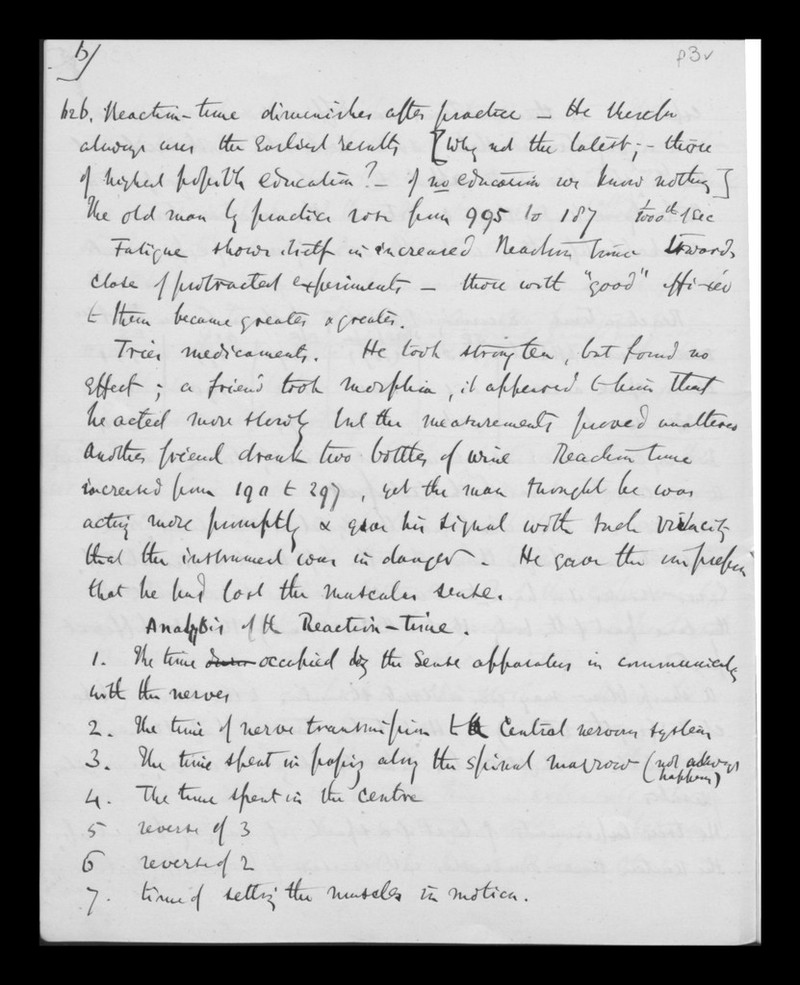 b/
p3v
626. Reaction-time diminishes after practice — He therefore
always uses the Earliest results [Why not the latest; - those
of highest possible education? — of no education we know nothing]
The old man by practice rose from 995 to 187 1/1000th of sec
Fatigue shows itself in increased Reaction time towards
close of protracted experiments — those with "good"
to them became greater & greater.
Tries medicaments. He took strong tea, but found no
effect; a friend took morphia, it appeared to him that
he acted more slowly but the measurements proved unaltered
Another friend drank two bottles of wine Reaction time
increased from 190 to 297, yet the man thought he was
acting more promptly & gave his signal with such vivacity
that the instrument was in danger. He gave the impression
that he had lost the muscular sense.
Analysis of the Reaction-time.
1. The time occupied by the sense apparatus in communicating
with the nerves
2. The time of nerve transmission to the Central nervous system
3. The time spent in passing along the spinal marrow (not always
happens)
4. The time spent in the centre
5 reverse of 3
6 reverse of 2
7. time of setting the muscles in motion.